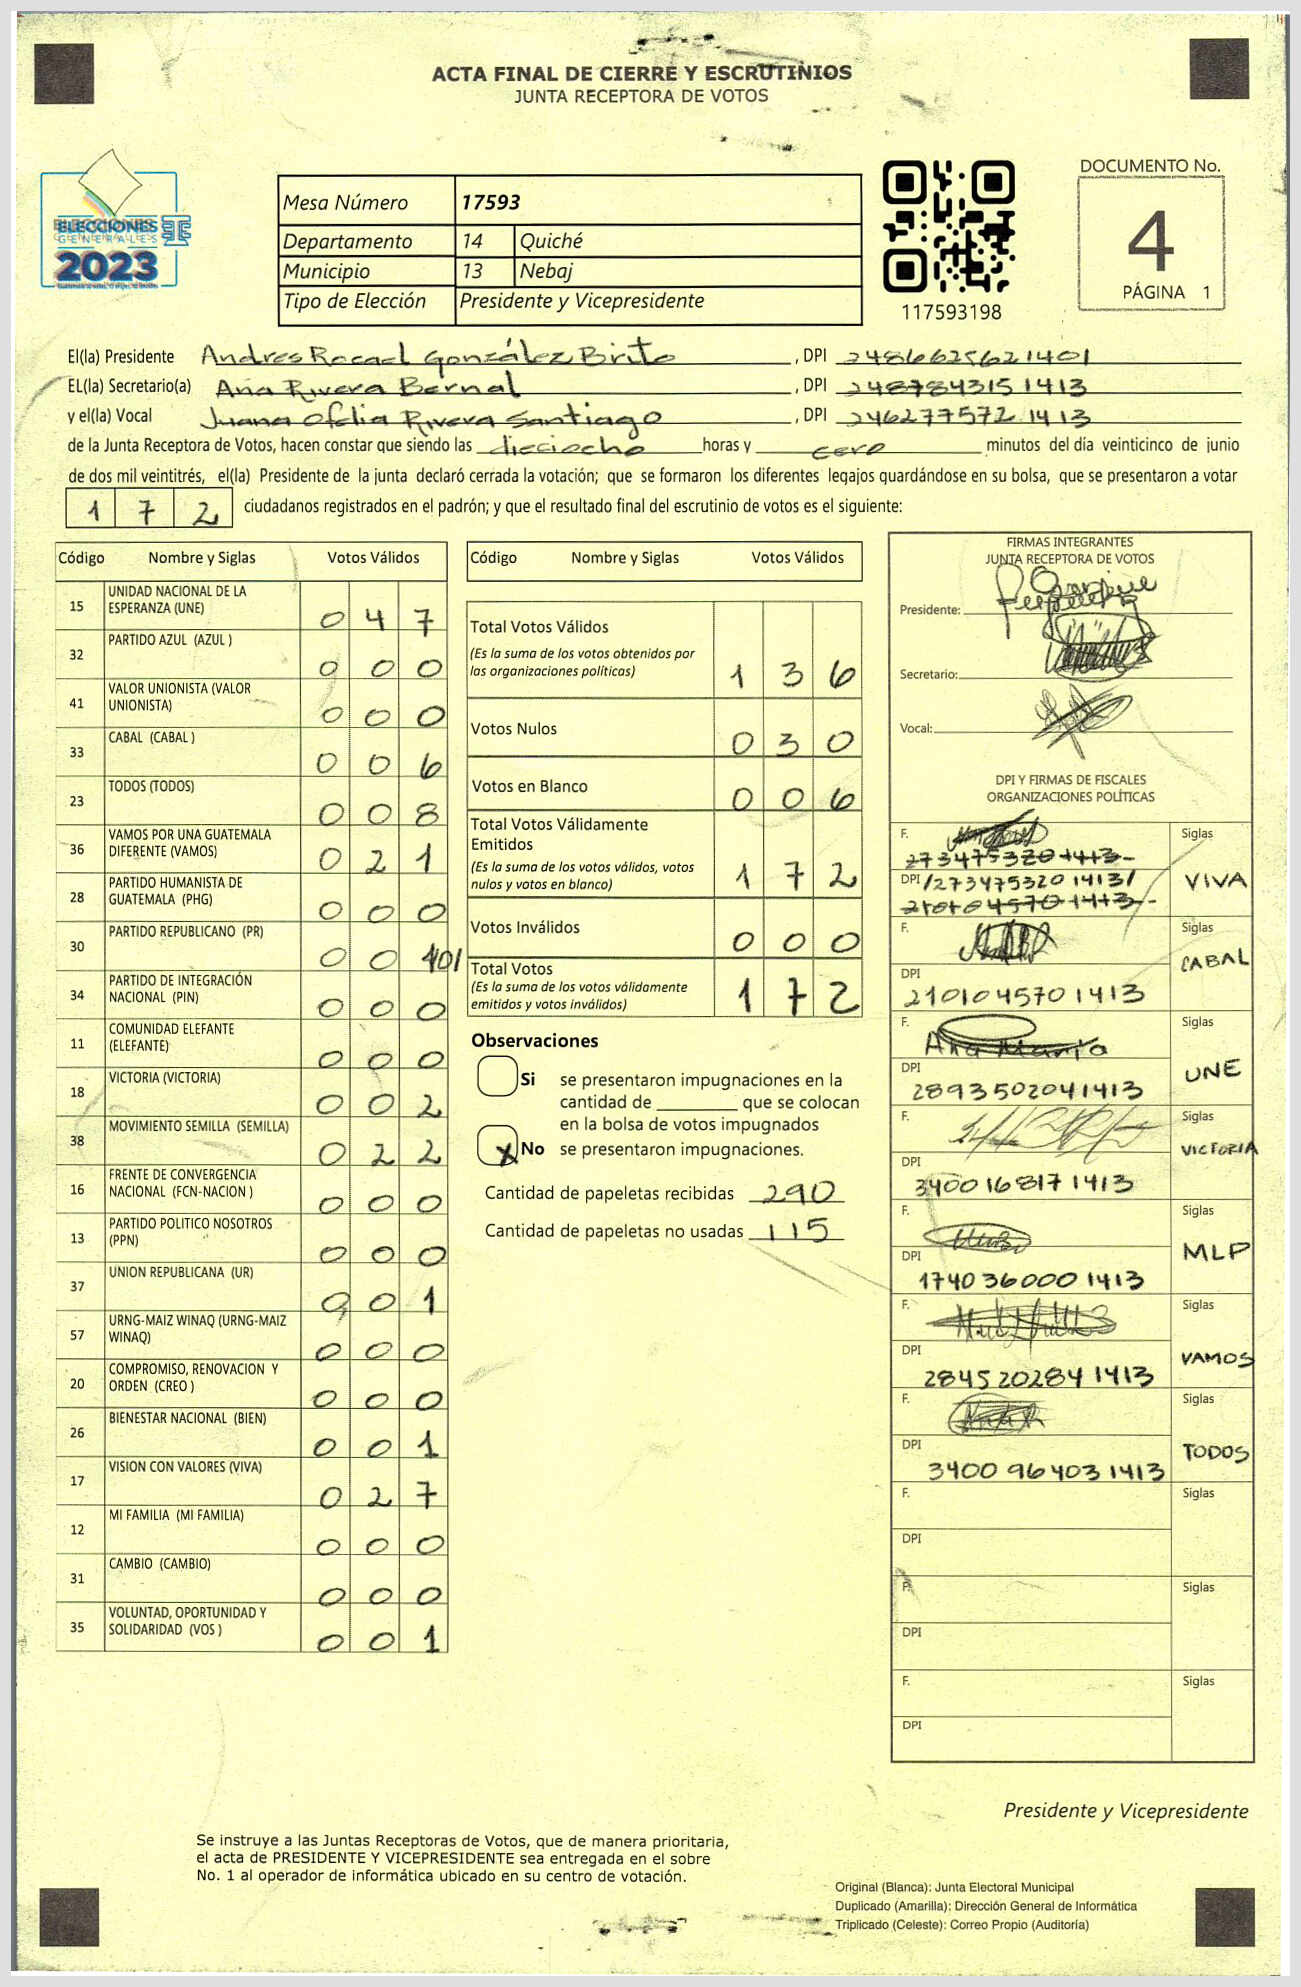 ACTA FINAL DE CIERRE Y ESCRUTINIOS
JUNTA RECEPTORA DE VOTOS
ELECCIONES
GENERALES
2023
Mesa Número 17593
Departamento 14 Quiché
Municipio 13 Nebaj
Tipo de Elección Presidente y Vicepresidente
117593198
DOCUMENTO No.
4
PÁGINA 1
El(la) Presidente Andres Rocael González Brito, DPI 2486625621401
EL(la) Secretario(a) Ana Rivera Bernal, DPI 2487843151413
y el(la) Vocal Juana Ofelia Rivera Santiago, DPI 246277572 1413
de la Junta Receptora de Votos, hacen constar que siendo las dieciocho horas y cero minutos del día veinticinco de junio
de dos mil veintitrés, el(la) Presidente de la junta declaró cerrada la votación; que se formaron los diferentes legajos guardándose en su bolsa, que se presentaron a votar
1 7 2 ciudadanos registrados en el padrón; y que el resultado final del escrutinio de votos es el siguiente:
Código Nombre y Siglas Votos Válidos
15 UNIDAD NACIONAL DE LA ESPERANZA (UNE) 0 4 7
32 PARTIDO AZUL (AZUL ) 0 0 0
41 VALOR UNIONISTA (VALOR UNIONISTA) 0 0 0
33 CABAL (CABAL ) 0 0 6
23 TODOS (TODOS) 0 0 8
36 VAMOS POR UNA GUATEMALA DIFERENTE (VAMOS) 0 2 1
28 PARTIDO HUMANISTA DE GUATEMALA (PHG) 0 0 0
30 PARTIDO REPUBLICANO (PR) 0 0 /01
34 PARTIDO DE INTEGRACIÓN NACIONAL (PIN) 0 0 0
11 COMUNIDAD ELEFANTE (ELEFANTE) 0 0 0
18 VICTORIA (VICTORIA) 0 0 2
38 MOVIMIENTO SEMILLA (SEMILLA) 0 2 2
16 FRENTE DE CONVERGENCIA NACIONAL (FCN-NACION ) 0 0 0
13 PARTIDO POLITICO NOSOTROS (PPN) 0 0 0
37 UNION REPUBLICANA (UR) 0 0 1
57 URNG-MAIZ WINAQ (URNG-MAIZ WINAQ) 0 0 0
20 COMPROMISO, RENOVACION Y ORDEN (CREO ) 0 0 0
26 BIENESTAR NACIONAL (BIEN) 0 0 1
17 VISION CON VALORES (VIVA) 0 2 7
12 MI FAMILIA (MI FAMILIA) 0 0 0
31 CAMBIO (CAMBIO) 0 0 0
35 VOLUNTAD, OPORTUNIDAD Y SOLIDARIDAD (VOS ) 0 0 1
Código Nombre y Siglas Votos Válidos
Total Votos Válidos
(Es la suma de los votos obtenidos por
las organizaciones políticas) 1 3 6
Votos Nulos 0 3 0
Votos en Blanco 0 0 6
Total Votos Válidamente
Emitidos
(Es la suma de los votos válidos, votos
nulos y votos en blanco) 1 7 2
Votos Inválidos 0 0 0
Total Votos
(Es la suma de los votos válidamente
emitidos y votos inválidos) 1 7 2
Observaciones
Si se presentaron impugnaciones en la
cantidad de ________ que se colocan
en la bolsa de votos impugnados
X No se presentaron impugnaciones.
Cantidad de papeletas recibidas 290
Cantidad de papeletas no usadas 115
FIRMAS INTEGRANTES
JUNTA RECEPTORA DE VOTOS
Presidente:
Secretario:
Vocal:
DPI Y FIRMAS DE FISCALES
ORGANIZACIONES POLÍTICAS
F. Siglas
273475320 1413
DPI /273475320 1413/ VIVA
210104570 1413
F. Siglas
CABAL
DPI
210104570 1413
F. Ana María Siglas
UNE
DPI
2893502041413
F. Siglas
VICTORIA
DPI
3400 16817 1413
F. Siglas
MLP
DPI
1740 36000 1413
F. Siglas
VAMOS
DPI
2845 20284 1413
F. Siglas
TODOS
DPI
3400 96403 1413
F. Siglas
DPI
F. Siglas
DPI
F. Siglas
DPI
Presidente y Vicepresidente
Se instruye a las Juntas Receptoras de Votos, que de manera prioritaria,
el acta de PRESIDENTE Y VICEPRESIDENTE sea entregada en el sobre
No. 1 al operador de informática ubicado en su centro de votación.
Original (Blanca): Junta Electoral Municipal
Duplicado (Amarilla): Dirección General de Informática
Triplicado (Celeste): Correo Propio (Auditoría)